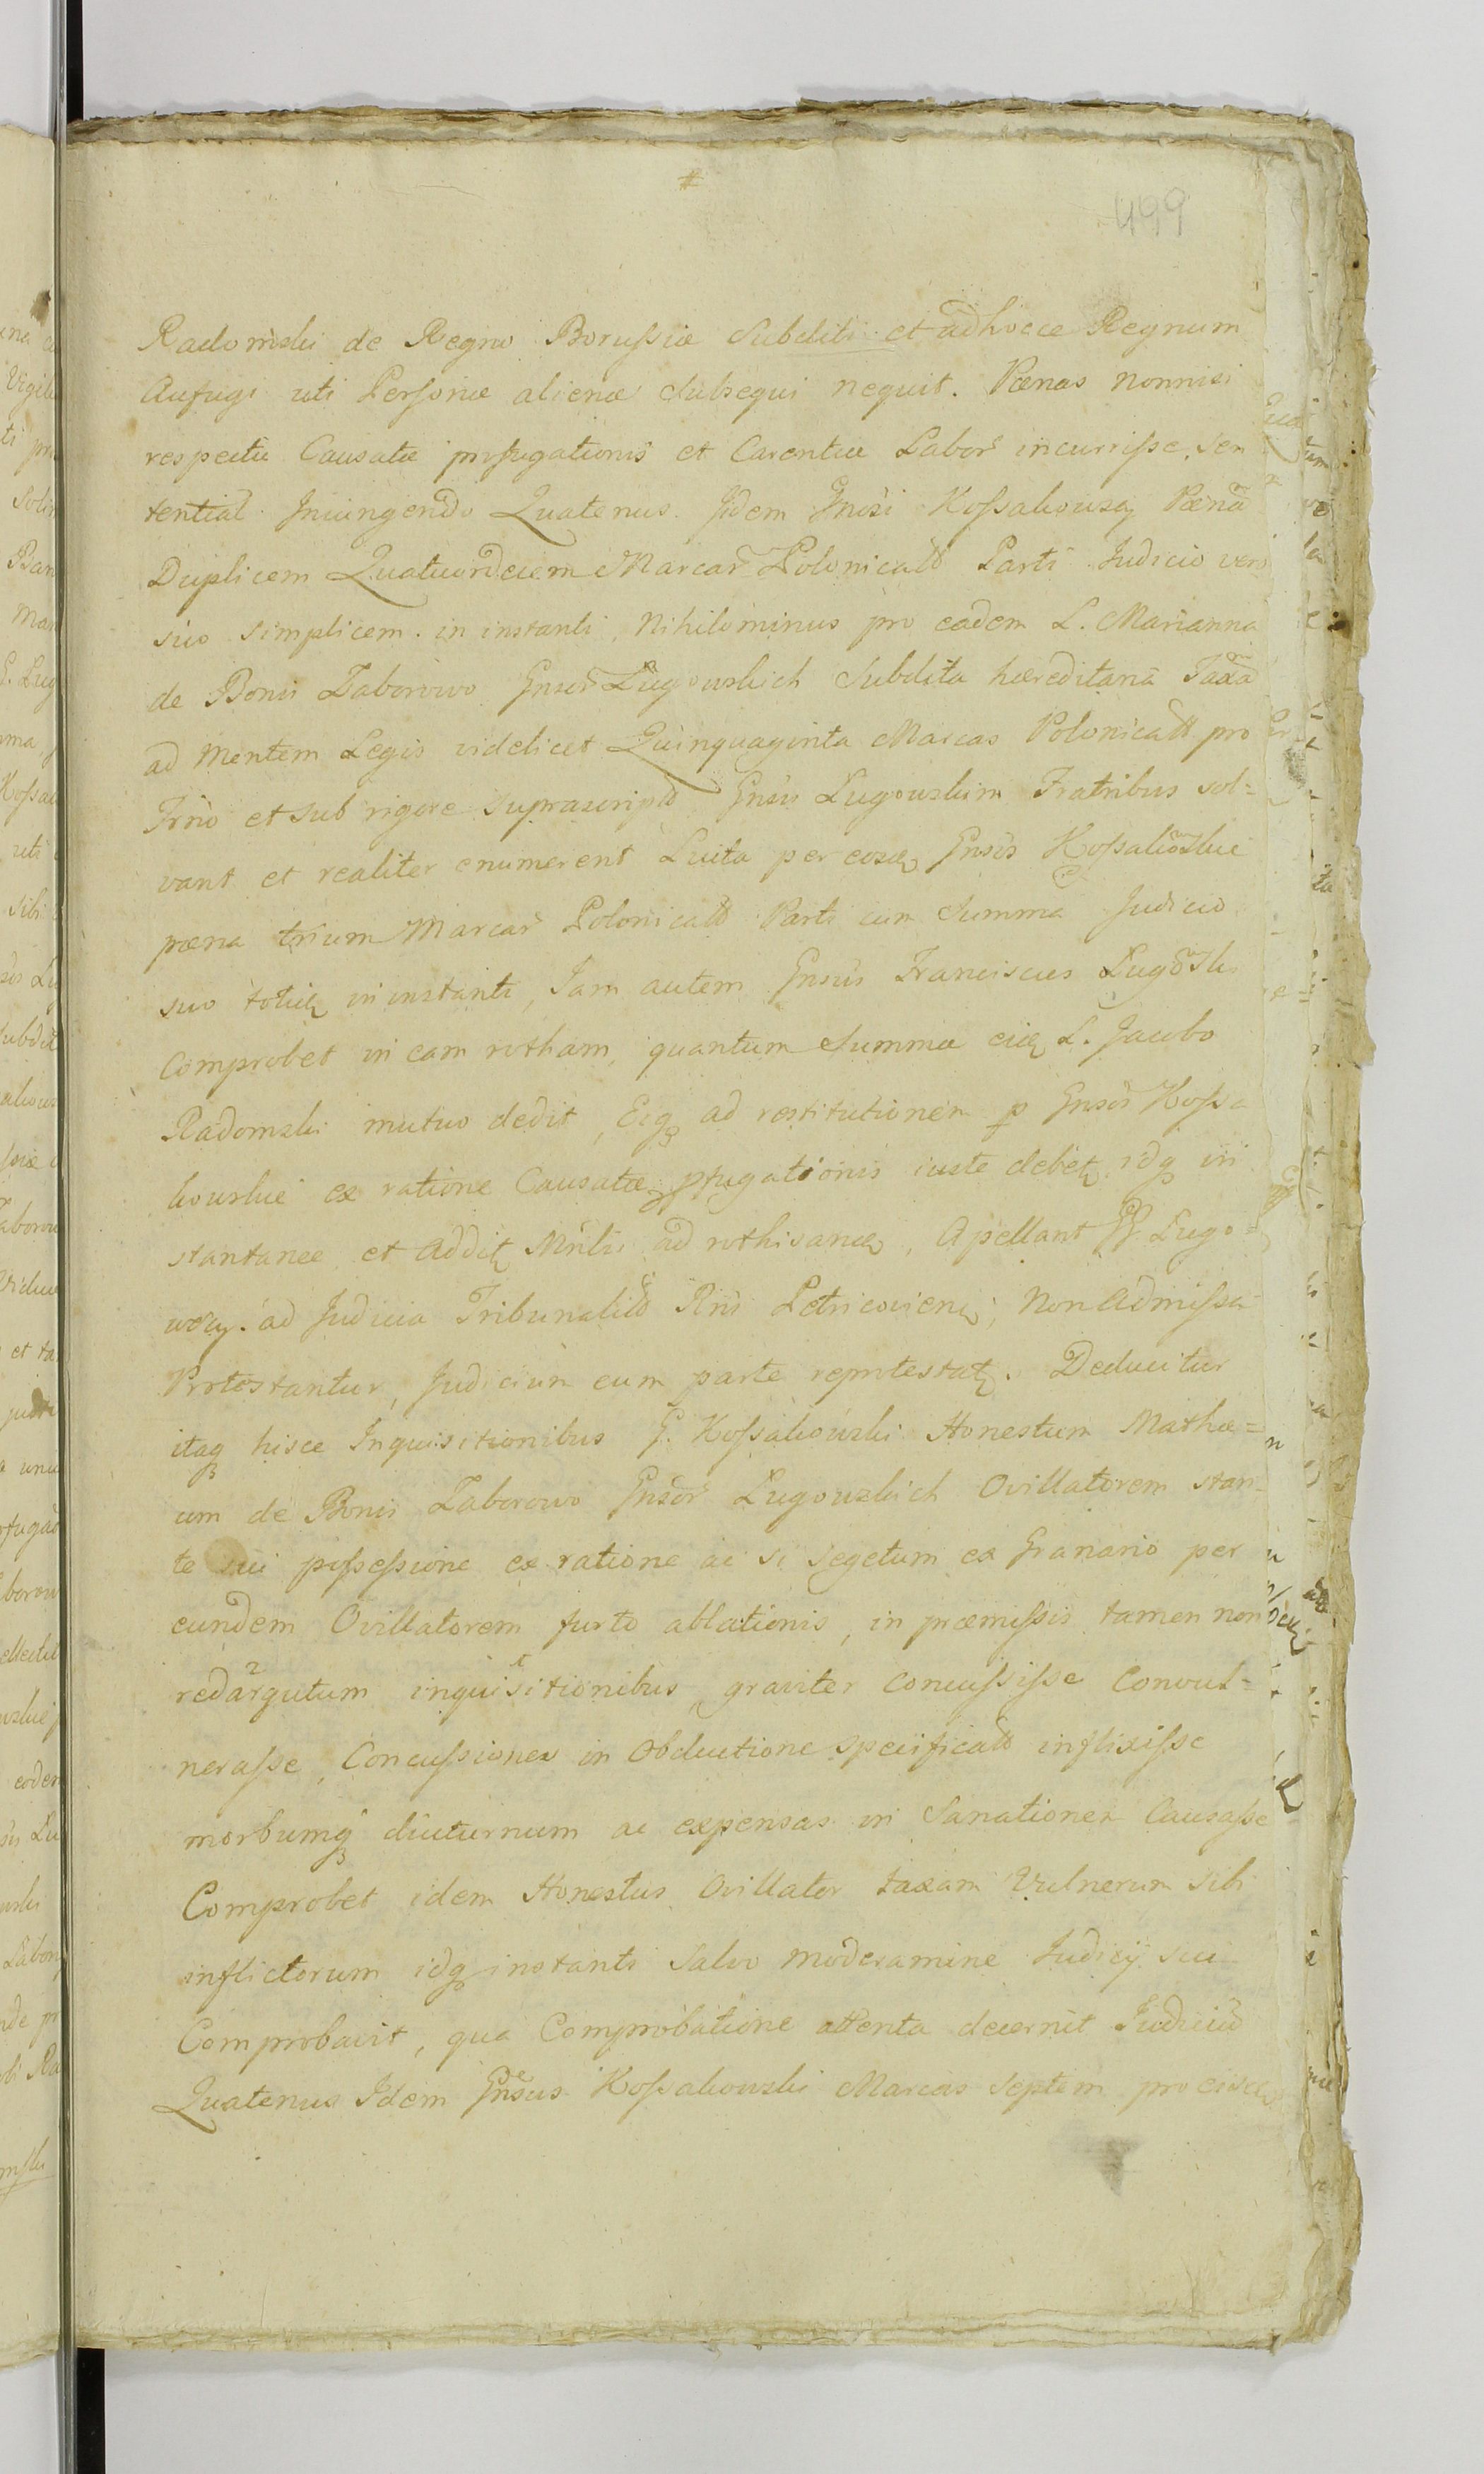 499
Radomski de Regno Borussiæ Subditi et adhocce Regnum
Aufugi uti Personæ alienæ Subsequi nequit. Pœnas nonnisi
respectu Causatæ profugationis et Carentiæ Labor incurrisse, Sen
tentiat Iniungendo Quatenus Iidem Gnosi Kossakowscy Pœna
Duplicem Quatuordecem Marcar Polonical Parti Judicio vero
suo simplicem in instanti, Nihilominus pro eadem L. Marianna
de Bonis Taborowo Gnsor Lugowskich Subdita hæreditaria Taxa
ad Mentem Legis videlicet Quinquaginta Marcas Polonical pro
Frno et sub rigore suprascrip Gnsis Lugowskim Fratribus sol=
vant et realiter enumerent Luita per eosd Gnsos Kossakowskie
pœna trium Marcar Polonical Parti cum Summa Judicio
suo totiq in instanti, Jam autem Gnsus Franciscus Lugowski
Comprobet in eam rotham, quantum Summæ eiq L. Jacobo
Radomski mutuo dedit, Eiq ad restitutionem p Gnsos Kossa
kowskie ex ratione Causatæ pfugationis iuste debet idq in
stantanee et Addit Mnlis ad rothisand, Apellant GG Lugo=
wscy ad Judicia Tribunalit Rni Petricovien, Non Admissa
Protestantur, Judicium cum parte reprotestat. Deducitur
itaq hisce Inquisitionibus G. Kossakowski Honestum Mathæ=
um de Bonis Taborowo Gnsor Lugowskich Ovillatorem stan
te sui possessione ex ratione ac si segetum ex Granario per
eundem Ovillatorem furto ablationis, in præmissis tamen non
redargutum inquisitionibus, graviter concussisse Convul=
nerasse, Concussiones in Obductione specificat inflixisse
morbumq diuturnum ac expensas in Sanationem Causasse
Comprobet idem Honestus Ovillator taxam Vulnerum Sibi
inflictorum idq instanti Salvo moderamine Judicij sui
Comprobavit, qua Comprobatione attenta decernit Judiciu
Quatenus Idem Gnsus Kossakowski Marcas Septem pro eisd